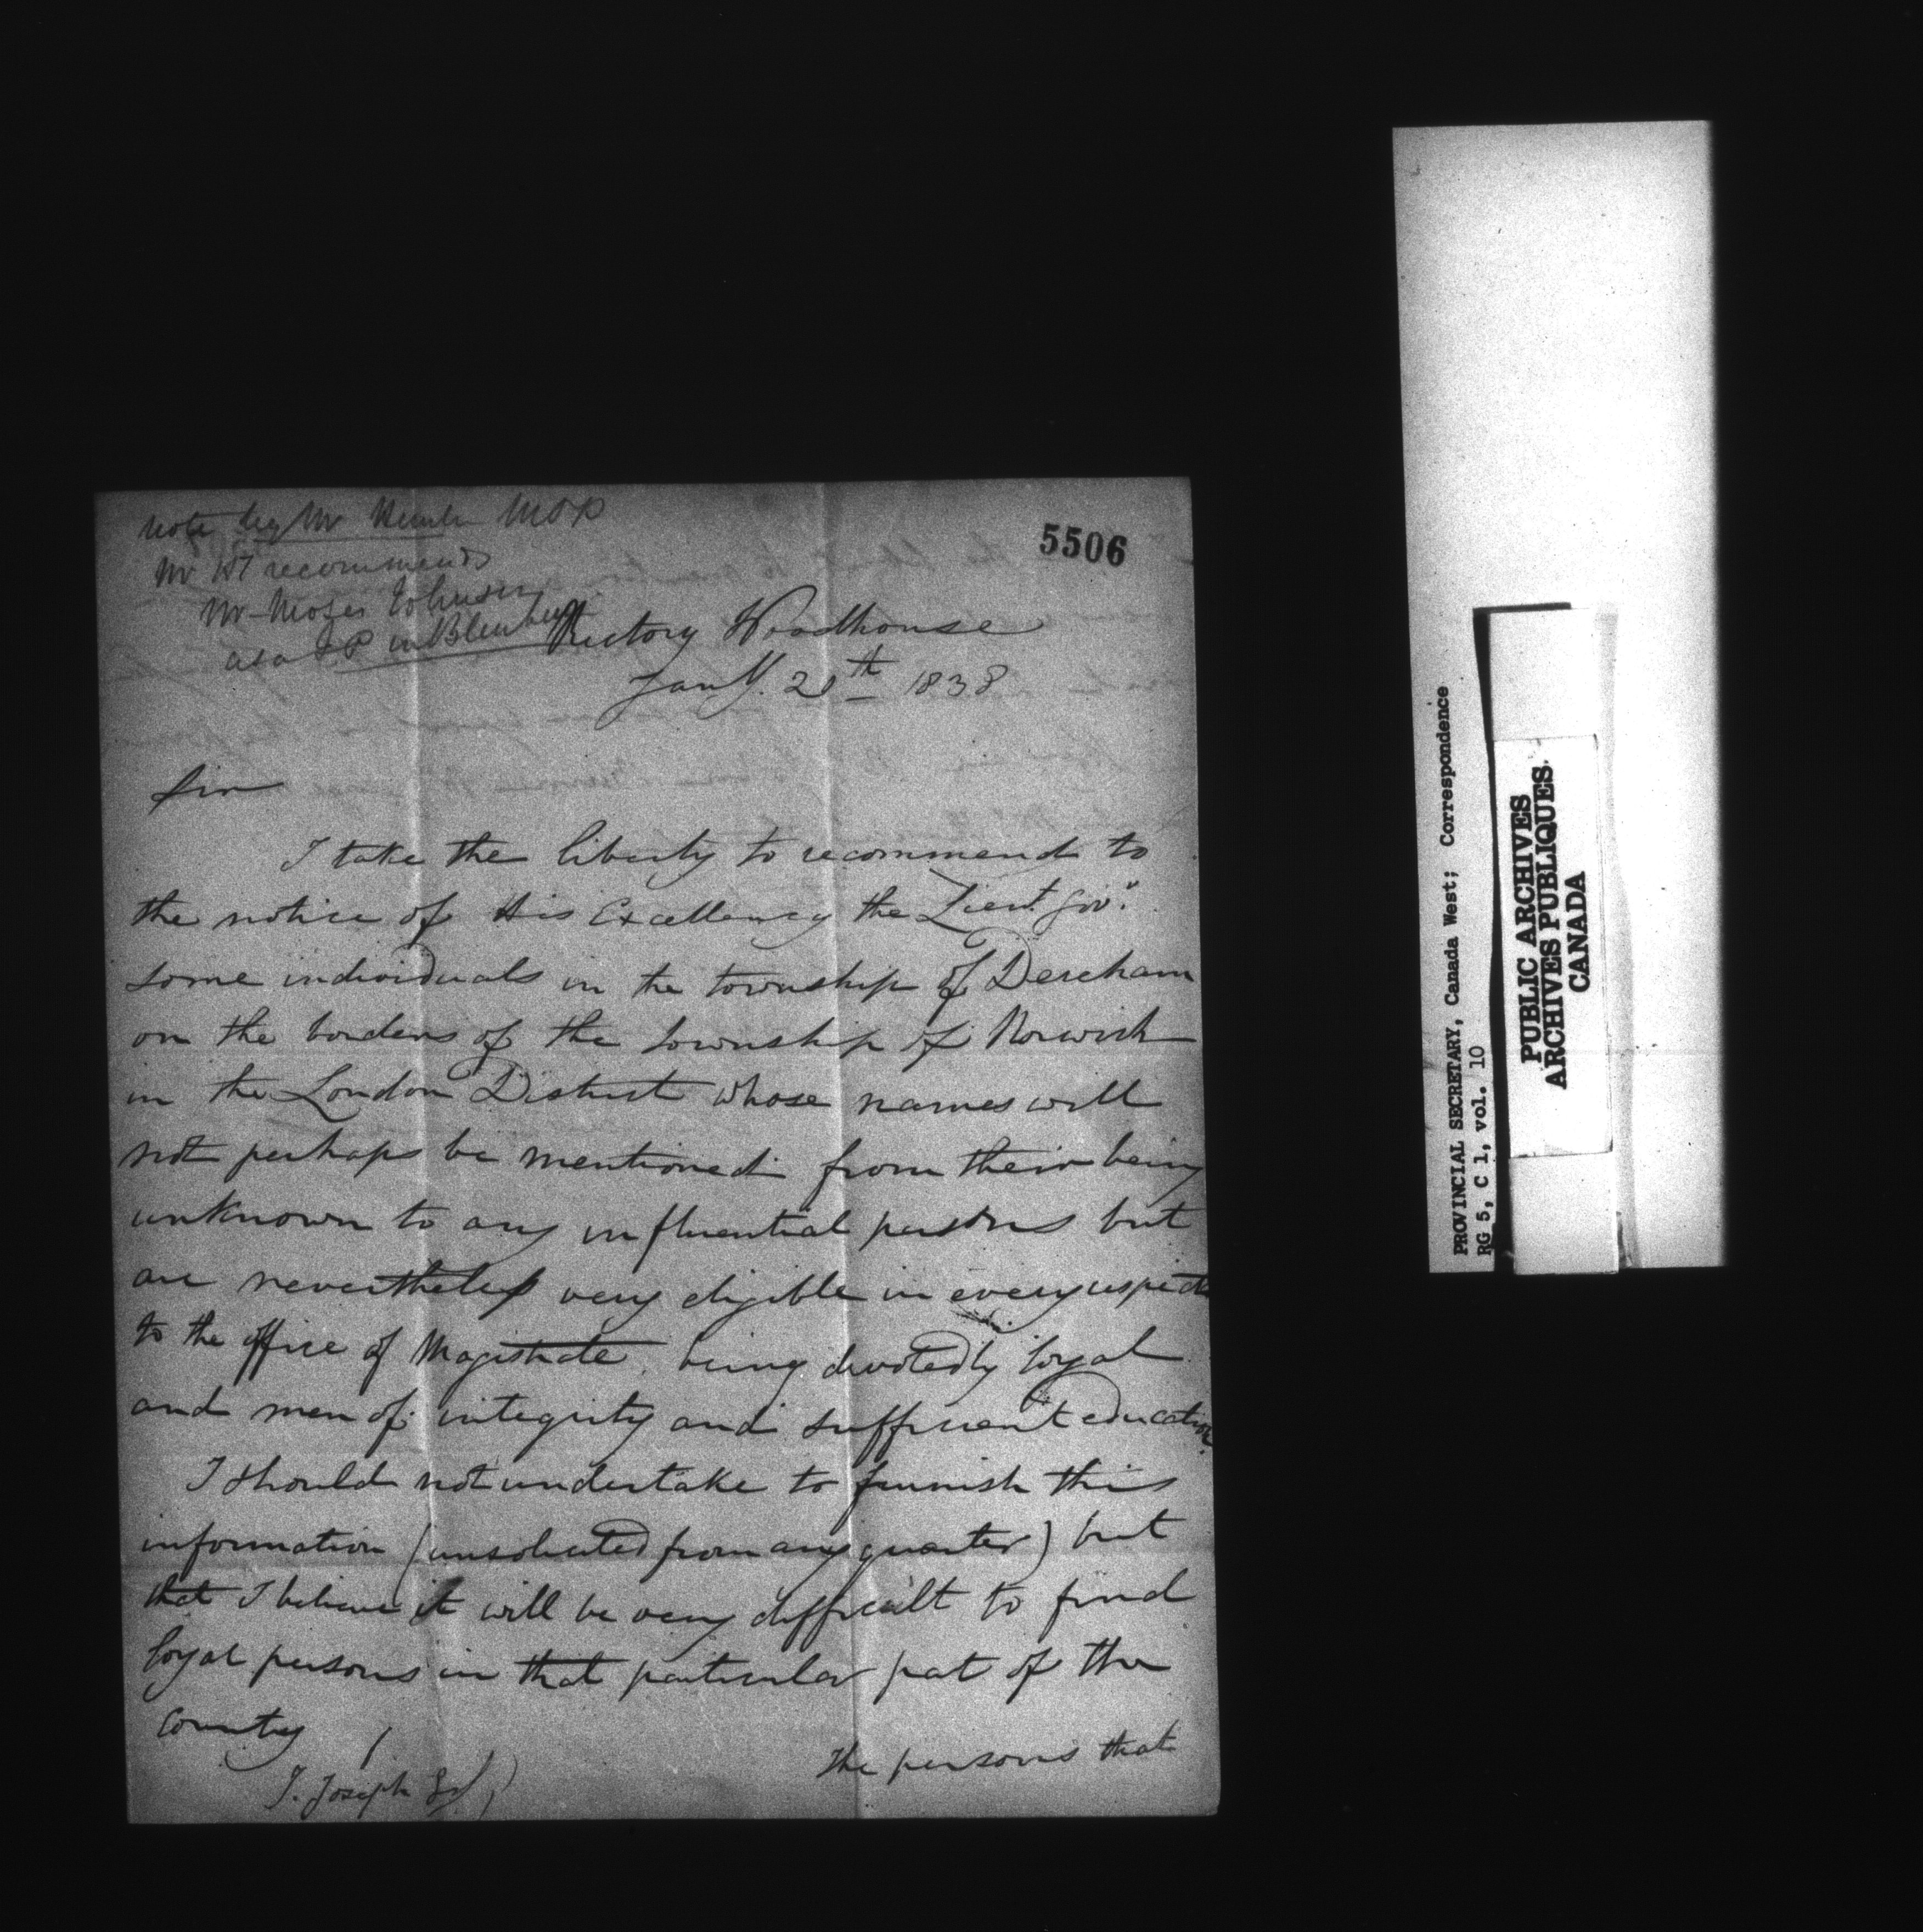 note by Mr MPP
Mr W recommends
Mr Moses Johnson
as a JP in Blenheim
5506
Rectory Woodhouse
Jany. 20th 1838
Sir
I take the liberty to recommend to
the notice of His Excellency the Lieut. Govr.
some individuals in the township of Dereham
on the borders of the township of Norwich
in the London District whose names will
not perhaps be mentioned from their being
unknown to any influential persons but
are nevertheless very eligible in every respect
to the office of Magistrate, being devotedly loyal
and men of integrity and sufficient education.
I should not undertake to furnish this
information (unsolicited from any quarter) but
that I believe it will be very difficult to find
loyal persons in that particular part of the
country
The persons that
J. Joseph Esq
PROVINCIAL SECRETARY, Canada West; Correspondence
RG 5, C 1, vol. 10
PUBLIC ARCHIVES
ARCHIVES PUBLIQUES
CANADA